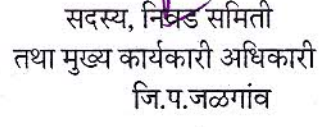 सदस्य, निवड समिती
तथा मुख्य कार्यकारी अधिकारी
जि.प.जळगांव